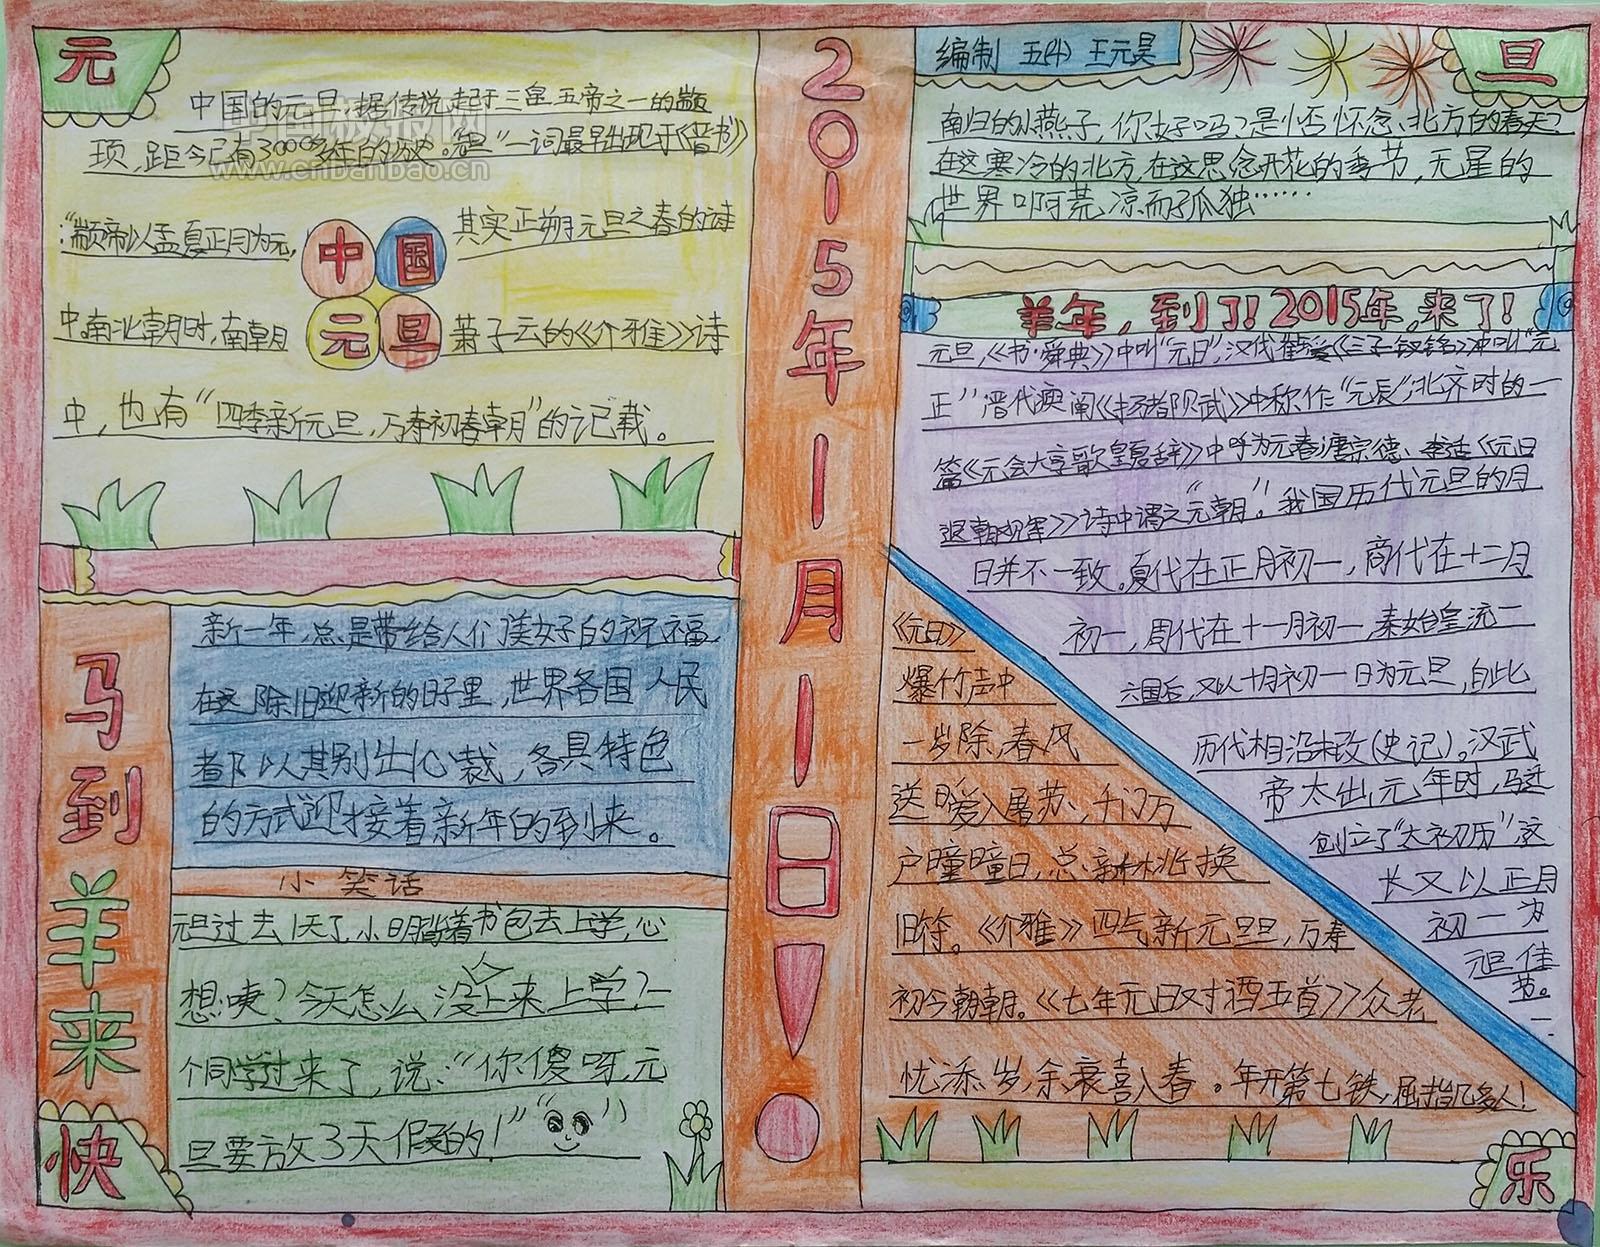 元
旦
快
乐
中国的元旦,据传说起于三皇五帝之一的颛
顼,距今已有3000多年的历史。"元旦"一词最早出现于《晋书》
:"颛帝以孟夏正月为元,
其实正朔元旦之春的诗
中。南北朝时,南朝
萧子云的《介雅》诗
中,也有"四季新元旦,万寿初春朝"的记载。
中国
元旦
中国板报网
www.cnbanbao.cn
马到羊来
新一年,总是带给人们美好的祝福,
在这除旧迎新的日子里,世界各国人民
都以其别出心裁,各具特色
的方式迎接着新年的到来。
小笑话
元旦过去1天了,小明背着书包去上学,心
想:咦?今天怎么没人来上学?一
个同学过来了,说:"你傻呀,元
旦要放3天假的!"
2015年1月1日!
编制 五(4) 王元昊
南归的小燕子,你好吗?是否怀念北方的春天?
在这寒冷的北方,在这思念开花的季节,无星的
世界啊荒凉而孤独……
羊年,到了!2015年,来了!
元旦,《书·舜典》中叫"元日",汉代崔瑗《三子钗铭》中叫"元
正"晋代庾阐《扬都赋》中称作"元辰",北齐时的一
篇《元会大享歌皇夏辞》中呼为元春,唐宗德、李适《元日
退朝观军》诗中谓之"元朝"。我国历代元旦的月
日并不一致。夏代在正月初一,商代在十二月
初一,周代在十一月初一,秦始皇流一
六国后,又以十月初一日为元旦,自此
历代相沿未改(史记)。汉武
帝太出,元,年时,马迁
创立了"太初历"这
长又以正月
初一为
元旦佳
节。
《元日》
爆竹声中
一岁除,春风
送暖入屠苏,千门万
户曈曈日,总新桃换
旧符。《介雅》四气新元旦旦,万寿
初今朝朝。《七年元日对酒五首》众老
忧添岁,余衰喜入春。年开第七铁,屈指几多人!